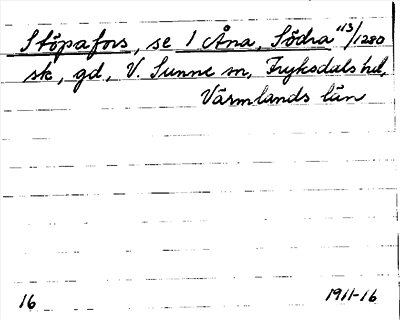 Stöpafors, se 1 Åna, Södra 113/1280
sk, gd, V. Sunne sn, Fryksdals hd,
Värmlands län
16 1911-16